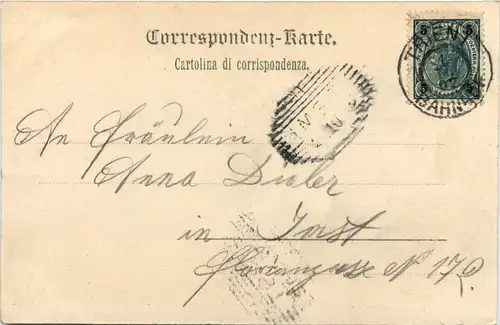 Correspondenz-Karte.
Cartolina di corrispondenza.
5 5
TRIENT
BAHNHOF
An Fräulein
Anna
in Imst
Floriangasse N 170.